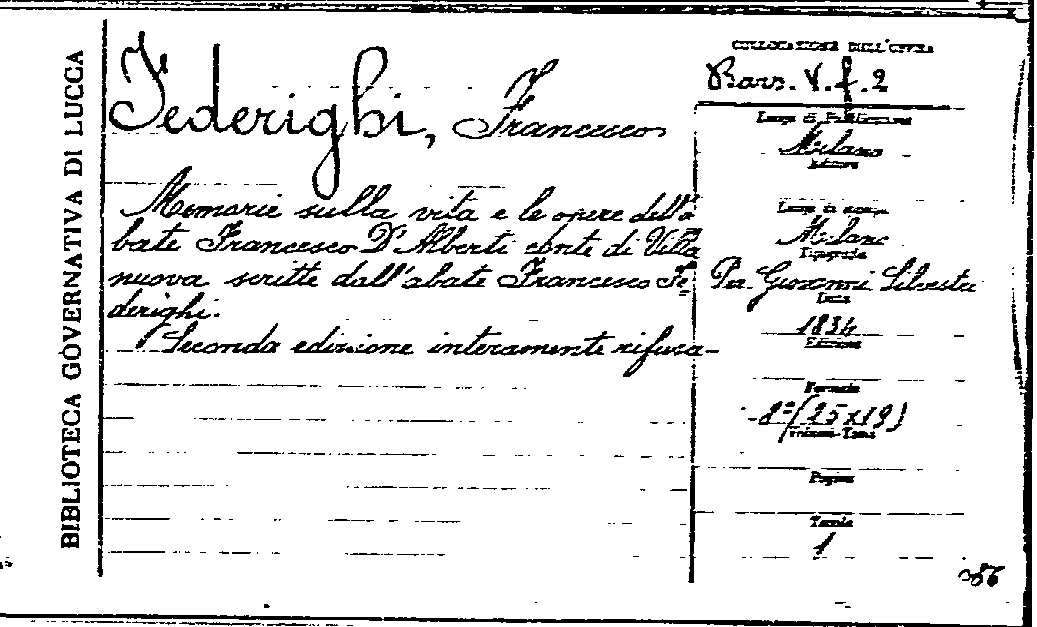 BIBLIOTECA GOVERNATIVA DI LUCCA
Federighi, Francesco
Memorie sulla vita e le opere dell'a
bate Francesco D'Alberti conte di Villa
nuova scritte dall'abate Francesco Fe
derighi.
Seconda edizione interamente rifusa-
COLLOCAZIONE DELL'OPERA
Bars. V. f. 2
Luogo di Pubblicazione
Milano
Editore
Luogo di stampa
Milano
Tipografia
Per Giovanni Silvestri
Data
1834
Edizione
Formato
8º (25x19)
Volume-Tomo
Pagine
Tavole
1